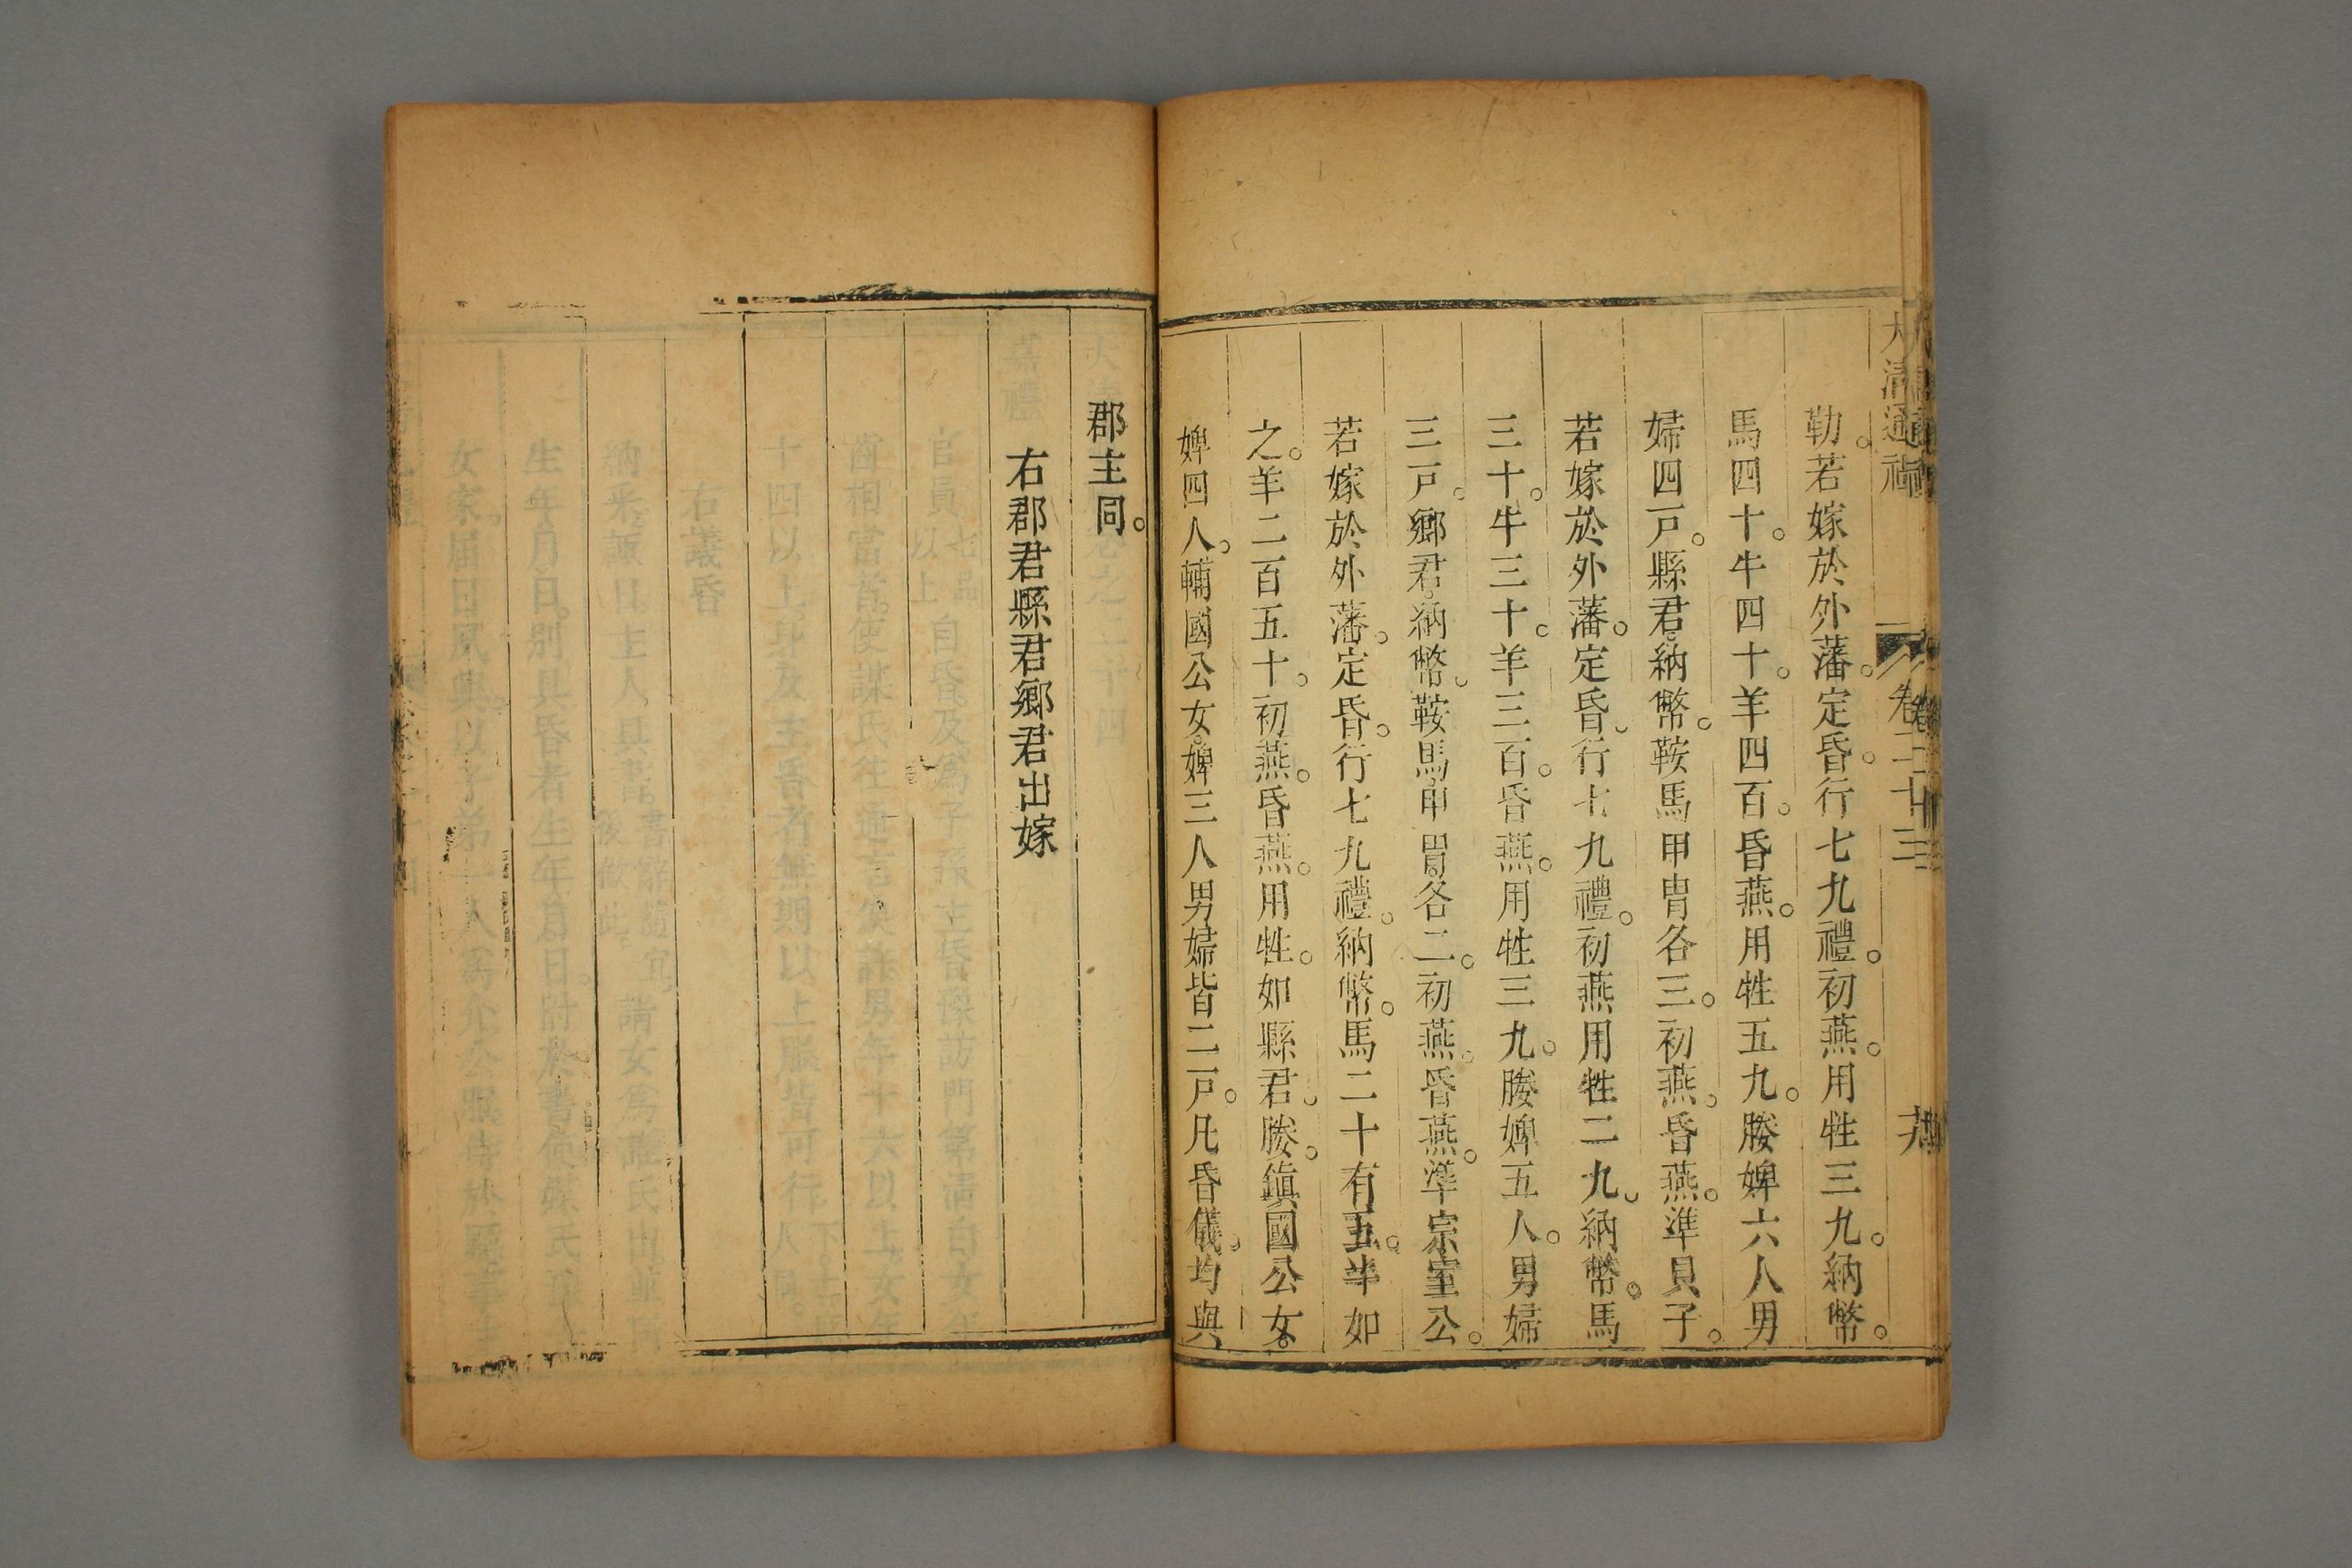 大清通禮 卷二十三
勒。若嫁於外藩。定昏。行七九禮。初燕。用牲三九。納幣。
馬四十。牛四十。羊四百。昏燕。用牲五九。媵婢六人男
婦四戶。縣君。納幣。鞍馬甲冑各三。初燕。昏燕。準貝子。
若嫁於外藩。定昏。行七九禮。初燕用牲二九。納幣。馬
三十。牛三十。羊三百。昏燕。用牲三九。媵婢五人。男婦
三戶。鄉君。納幣。鞍馬甲冑各二。初燕。昏燕。準宗室公。
若嫁於外藩。定昏。行七九禮。納幣。馬二十有五。牛如
之。羊二百五十。初燕。昏燕。用牲。如縣君。媵。鎮國公女。
婢四人。輔國公女。婢三人男婦皆二戶。凡昏儀。均與
郡主同。
右郡君縣君鄉君出嫁